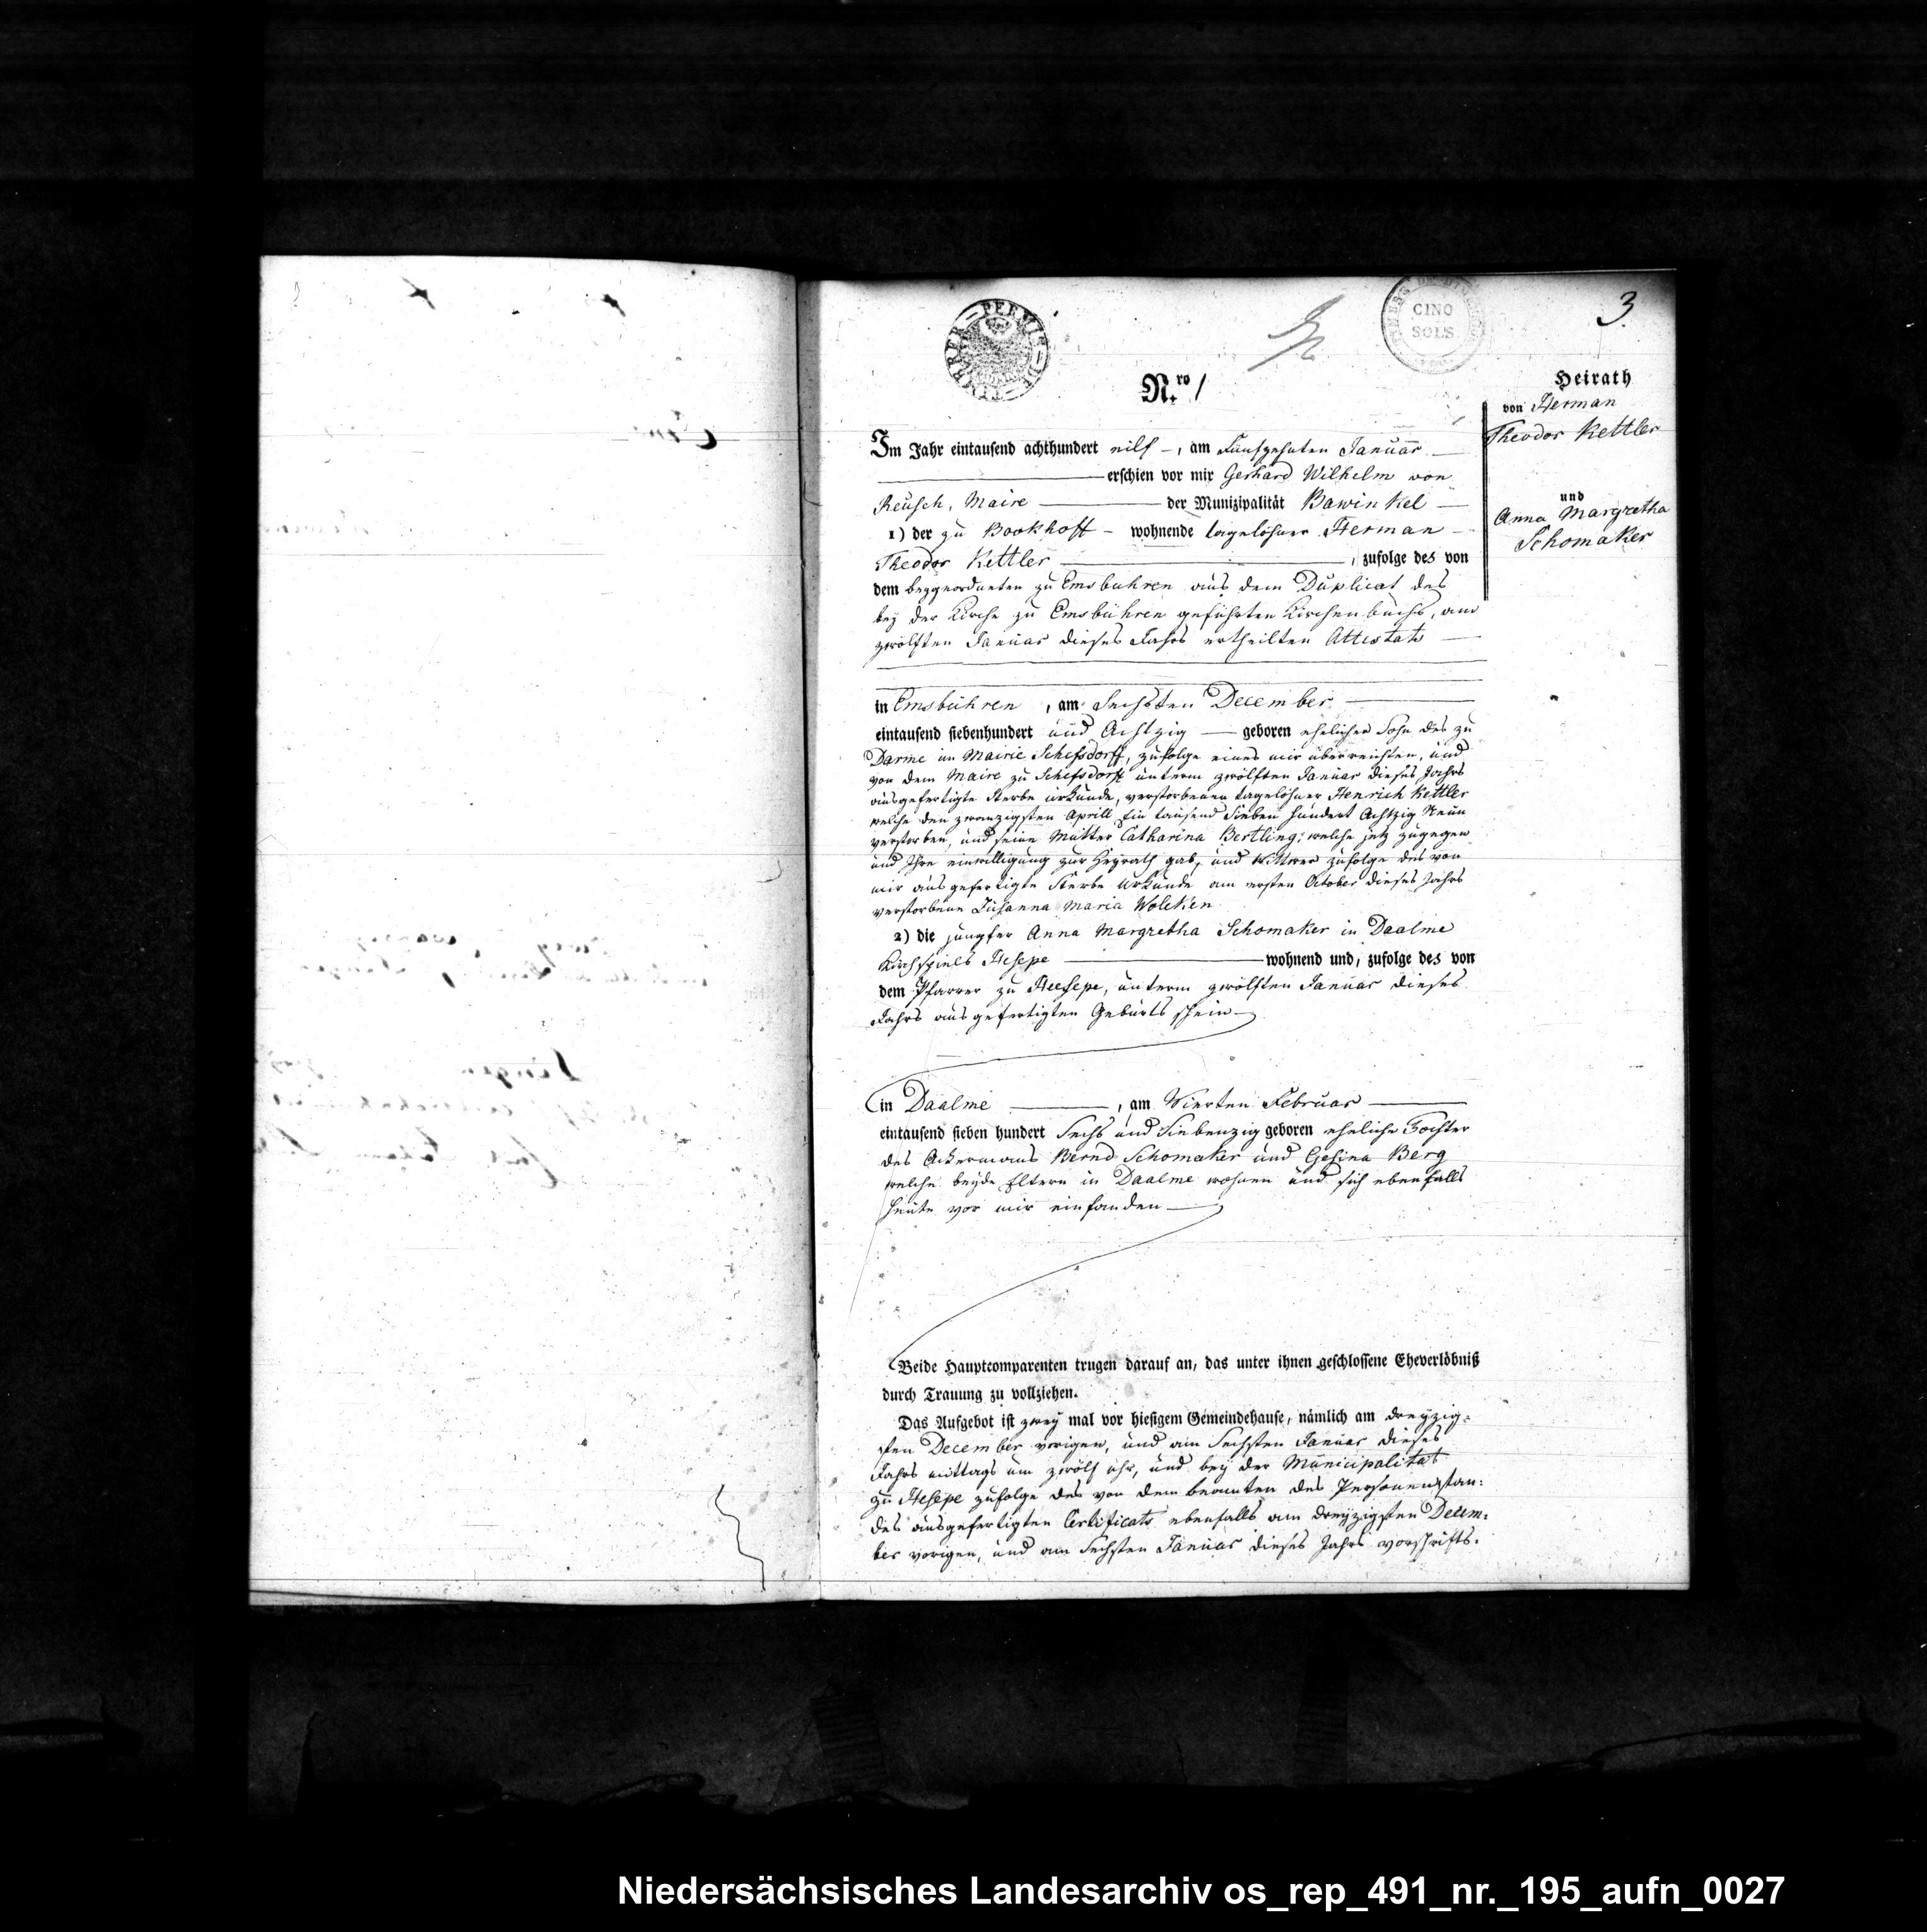 3.
PERMIS DE TIMBRER
CINQ
SOLS
N.ro 1
Heirath
von Herman
Theodor Kettler
und
Anna Margretha
Schomaker
Im Jahr eintausend achthundert eilf –, am Fünfzehnten Januar
erschien vor mir Gerhard Wilhelm von
Reusch, Maire der Munizipalität Bawinkel
1) der zu Bookhoff – wohnende tagelöhner Herman
Theodor Kettler, zufolge des von
dem beygeordneten zu Emsbuhren aus dem Duplicat des
bey der Kirche zu Emsbühren geführten Kirchenbuchs, am
zwölften Januar dieses Jahrs ertheilten Attestats
in Emsbühren, am Sechsten December
eintausend siebenhundert und Achtzig geboren ehelicher Sohn des zu
Darme im Mairie Schefsdorff, zufolge eines mir überreichten, und
von dem Maire zu Schefsdorff unterm zwölften Januar dieses Jahrs
ausgefertigte Sterbe urkunde, verstorbenen tagelöhner Henrich Kettler
welche den zwanzigsten Aprill Ein tausend Sieben hundert Achtzig Neun
verstorben, und seine Mutter Catharina Bertling; welche jetz zugegen
und Ihre einwilligung zur Heyrath gab, und Wittwer zufolge des von
mir ausgefertigte Sterbe Urkunde am ersten October dieses Jahrs
verstorbene Susanna Maria Wolcken
2) die jungfer Anna Margretha Schomaker in Daalme
Kirchspiels Hesepe wohnend und, zufolge des von
dem Pfarrer zu Heesepe, unterm zwölften Januar dieses
Jahrs ausgefertigten Geburts schein
in Daalme, am Vierten Februar
eintausend sieben hundert Sechs und Siebenzig geboren eheliche Tochter
des Ackermans Bernd Schomaker und Gesina Berg
welche beyde Eltern in Daalme wohnen und sich ebenfalls
heute vor mir einfanden
Beide Hauptcomparenten trugen darauf an, das unter ihnen geschlossene Eheverlöbniß
durch Trauung zu vollziehen.
Das Aufgebot ist zwey mal vor hiesigem Gemeindehause, nämlich am dreyzig-
sten December vorigen, und am Sechsten Januar dieses
Jahrs mittags um zwölf uhr, und bey der Municipalitat
zu Hesepe zufolge des von dem beamten des Personenstan:
des ausgefertigten Certificats ebenfalls am dreyzigsten Decem:
ber vorigen, und am Sechsten Januar dieses Jahrs vorschrifts:
Niedersächsisches Landesarchiv os_rep_491_nr._195_aufn_0027